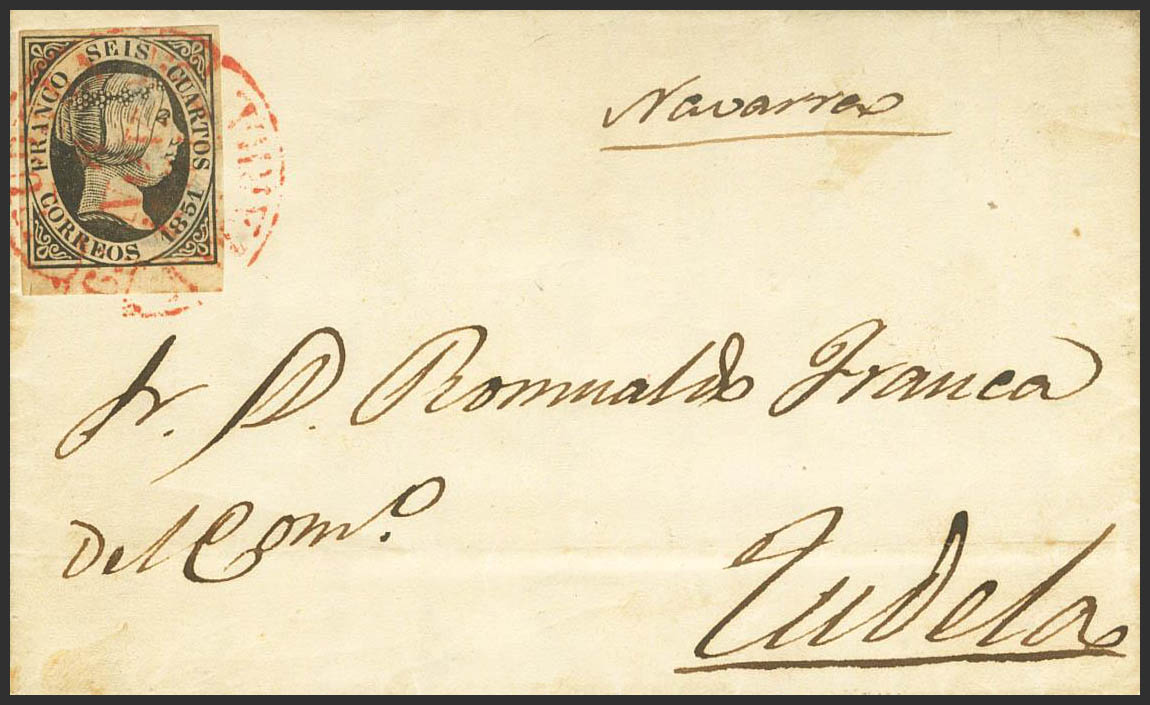 FRANCO SEIS CUARTOS
CORREOS 1851
Navarra
Sr. D. Romualdo Franca
del Comº.
Tudela